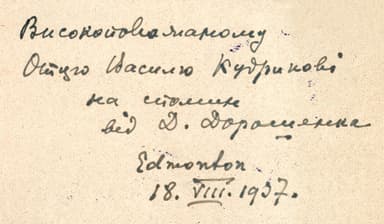 Високоповажаному
Отцю Василю Кудрикові
на спомин
від Д. Дорошенка
Edmonton
18. VIII. 1937.